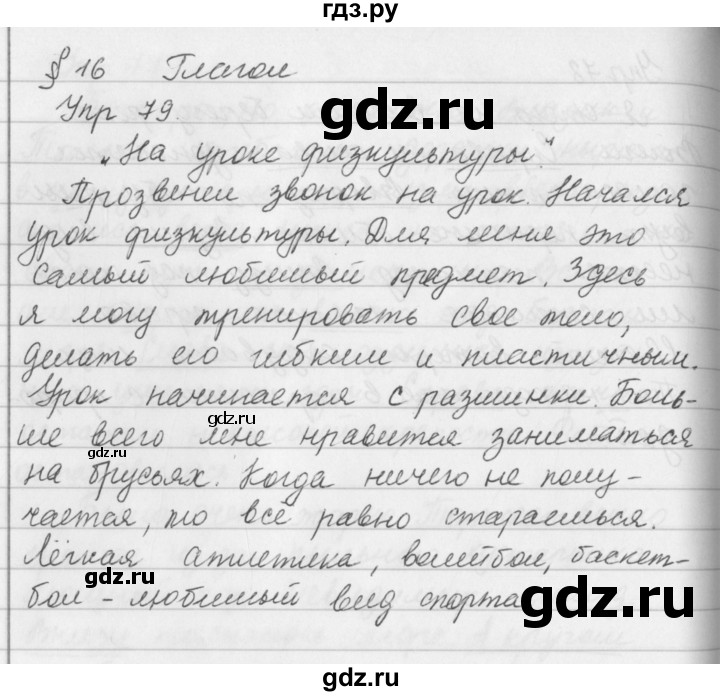 гдз.ру
§ 16 Глагол
Упр 79.
gdz.ru
„На уроке физкультуры."
Прозвенел звонок на урок. Начался
урок физкультуры. Для меня это
самый любимый предмет. Здесь
я могу тренировать свое тело,
делать его гибким и пластичным.
Урок начинается с разминки. Боль-
gdz.ru
gdz.ru
ше всего мне нравится заниматься
на брусьях. Когда ничего не полу-
чается, то всё равно стараешься.
Лёгкая атлетика, волейбол, баскет-
gdz.ru
бол - любимый вид спорта
gdz.ru
gdz.ru